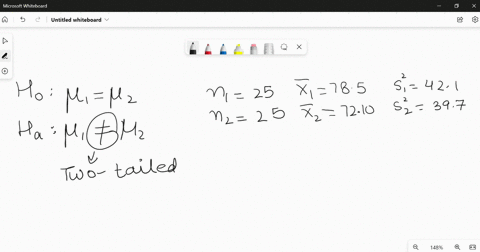 Microsoft Whiteboard
Untitled whiteboard
H₀ : μ₁ = μ₂
Hₐ : μ₁ ≠ μ₂
Two-tailed
n₁ = 25 x̄₁ = 78.5 s₁² = 42.1
n₂ = 25 x̄₂ = 72.10 s₂² = 39.7
148%